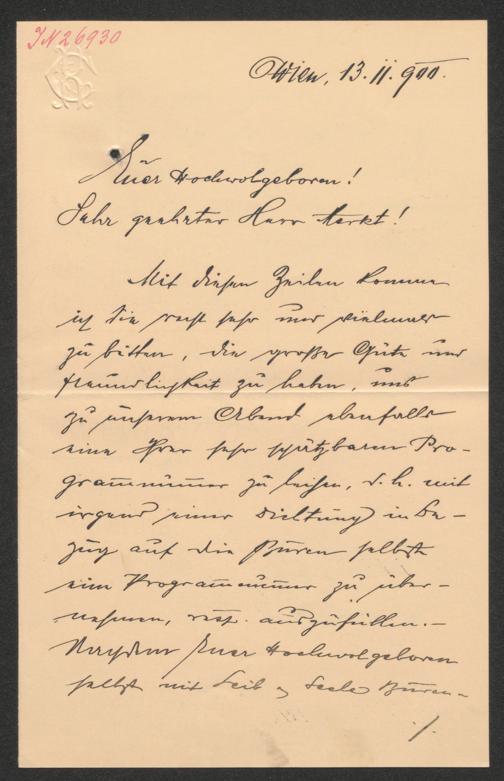 IN 26930
Wien, 13. II. 900.
Euer Hochwolgeboren!
Sehr geehrter Herr Markt!
Mit diesen Zeilen komme
ich Sie recht sehr und vielmals
zu bitten, die große Güte und
Freundlichkeit zu haben, uns
zu unserem Abend ebenfalls
eine Ihrer sehr schätzbaren Pro-
grammnummer zu leihen, d. h. mit
irgend einer Dichtung in Be-
zug auf die Buren selbst
eine Programmnummer zu über-
nehmen, resp. auszufüllen.-
Nachdem Euer Hochwolgeboren
selbst mit Leib u Seele Buren-
./.